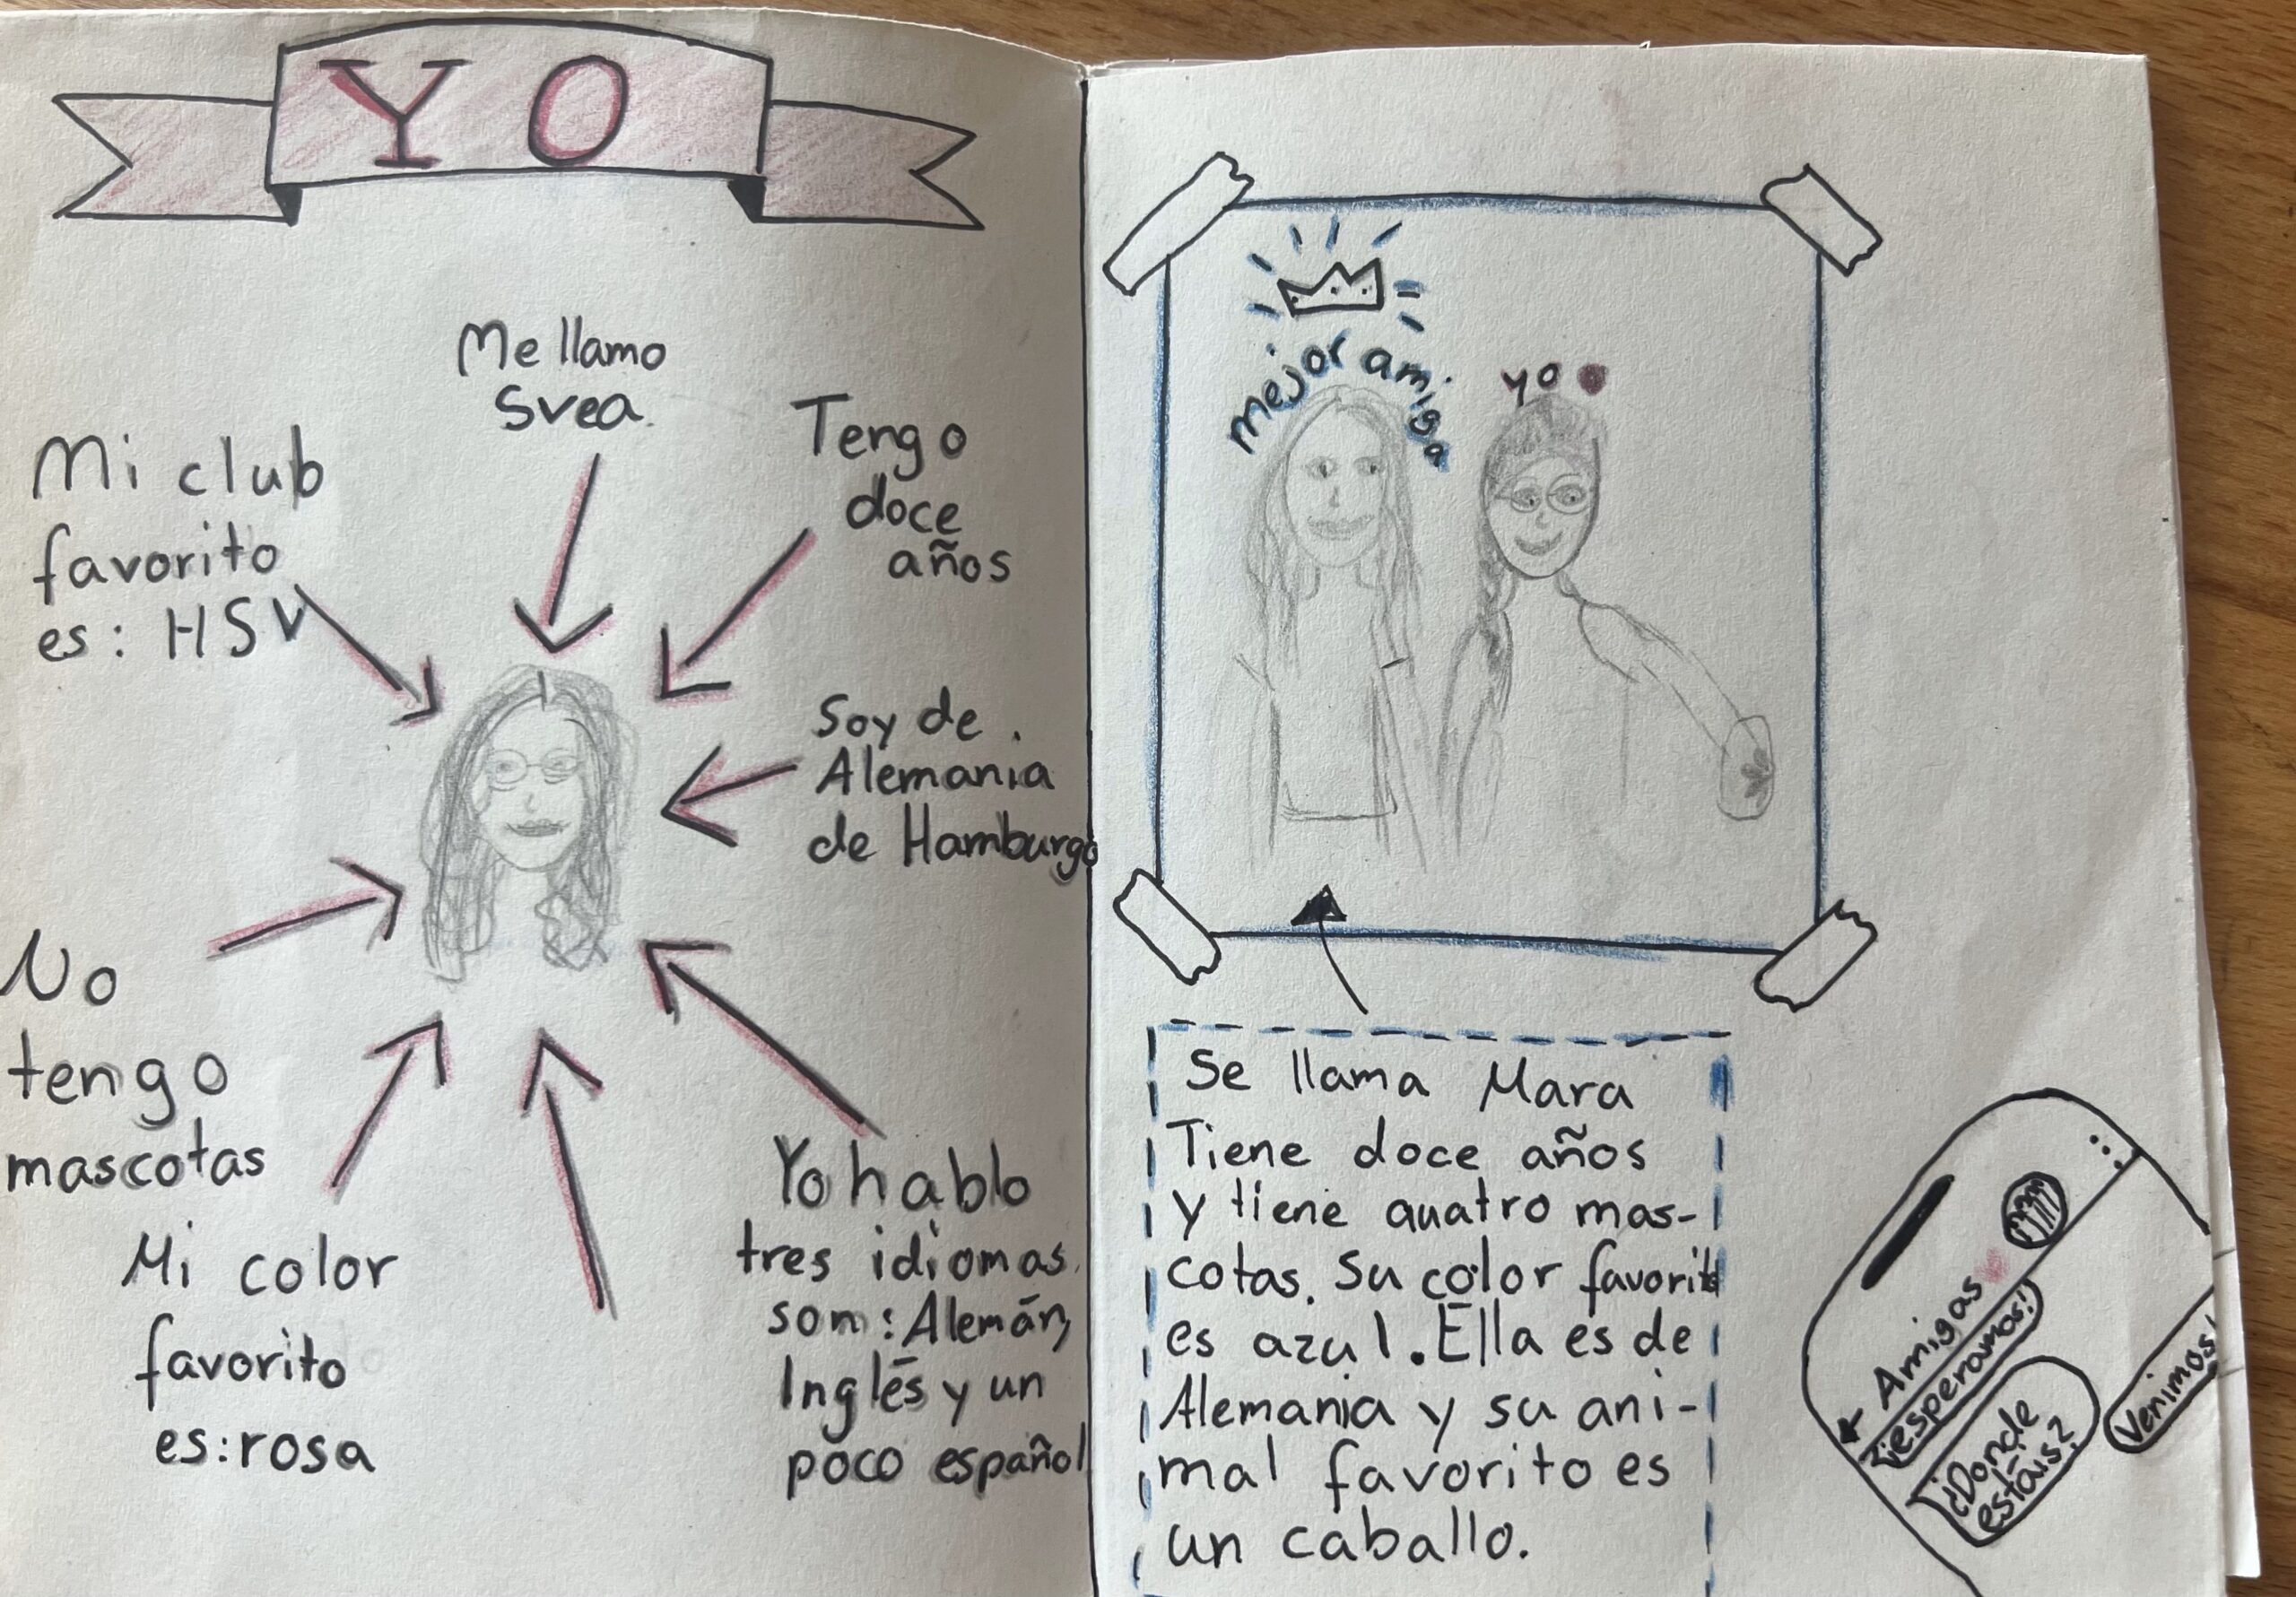 YO
Me llamo
Svea.
Tengo
doce
años
Mi club
favorito
es: HSV
Soy de
Alemania
de Hamburgo
No
tengo
mascotas
Mi color
favorito
es: rosa
Yo hablo
tres idiomas.
son: Alemán,
Inglés y un
poco español
mejor amiga
yo
Se llama Mara
Tiene doce años
y tiene quatro mas-
cotas. Su color favorito
es azul. Ella es de
Alemania y su ani-
mal favorito es
un caballo.
Amigas
¡esperamos!
¿Donde
estáis?
Venimos!